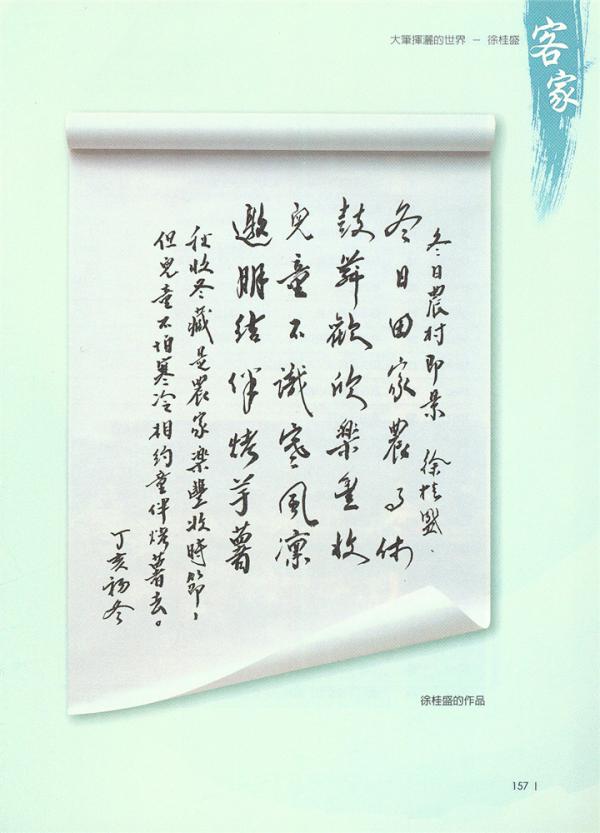 大筆揮灑的世界 – 徐桂盛
客家
冬日農村即景 徐桂盛.
冬日田家農事休
鼓舞歡欣樂豐收
兒童不識寒風凜
邀朋結伴烤芋薯
秋收冬藏是農家樂豐收時節，
但兒童不怕寒冷相約童伴烤薯去。
丁亥初冬
徐桂盛的作品
157